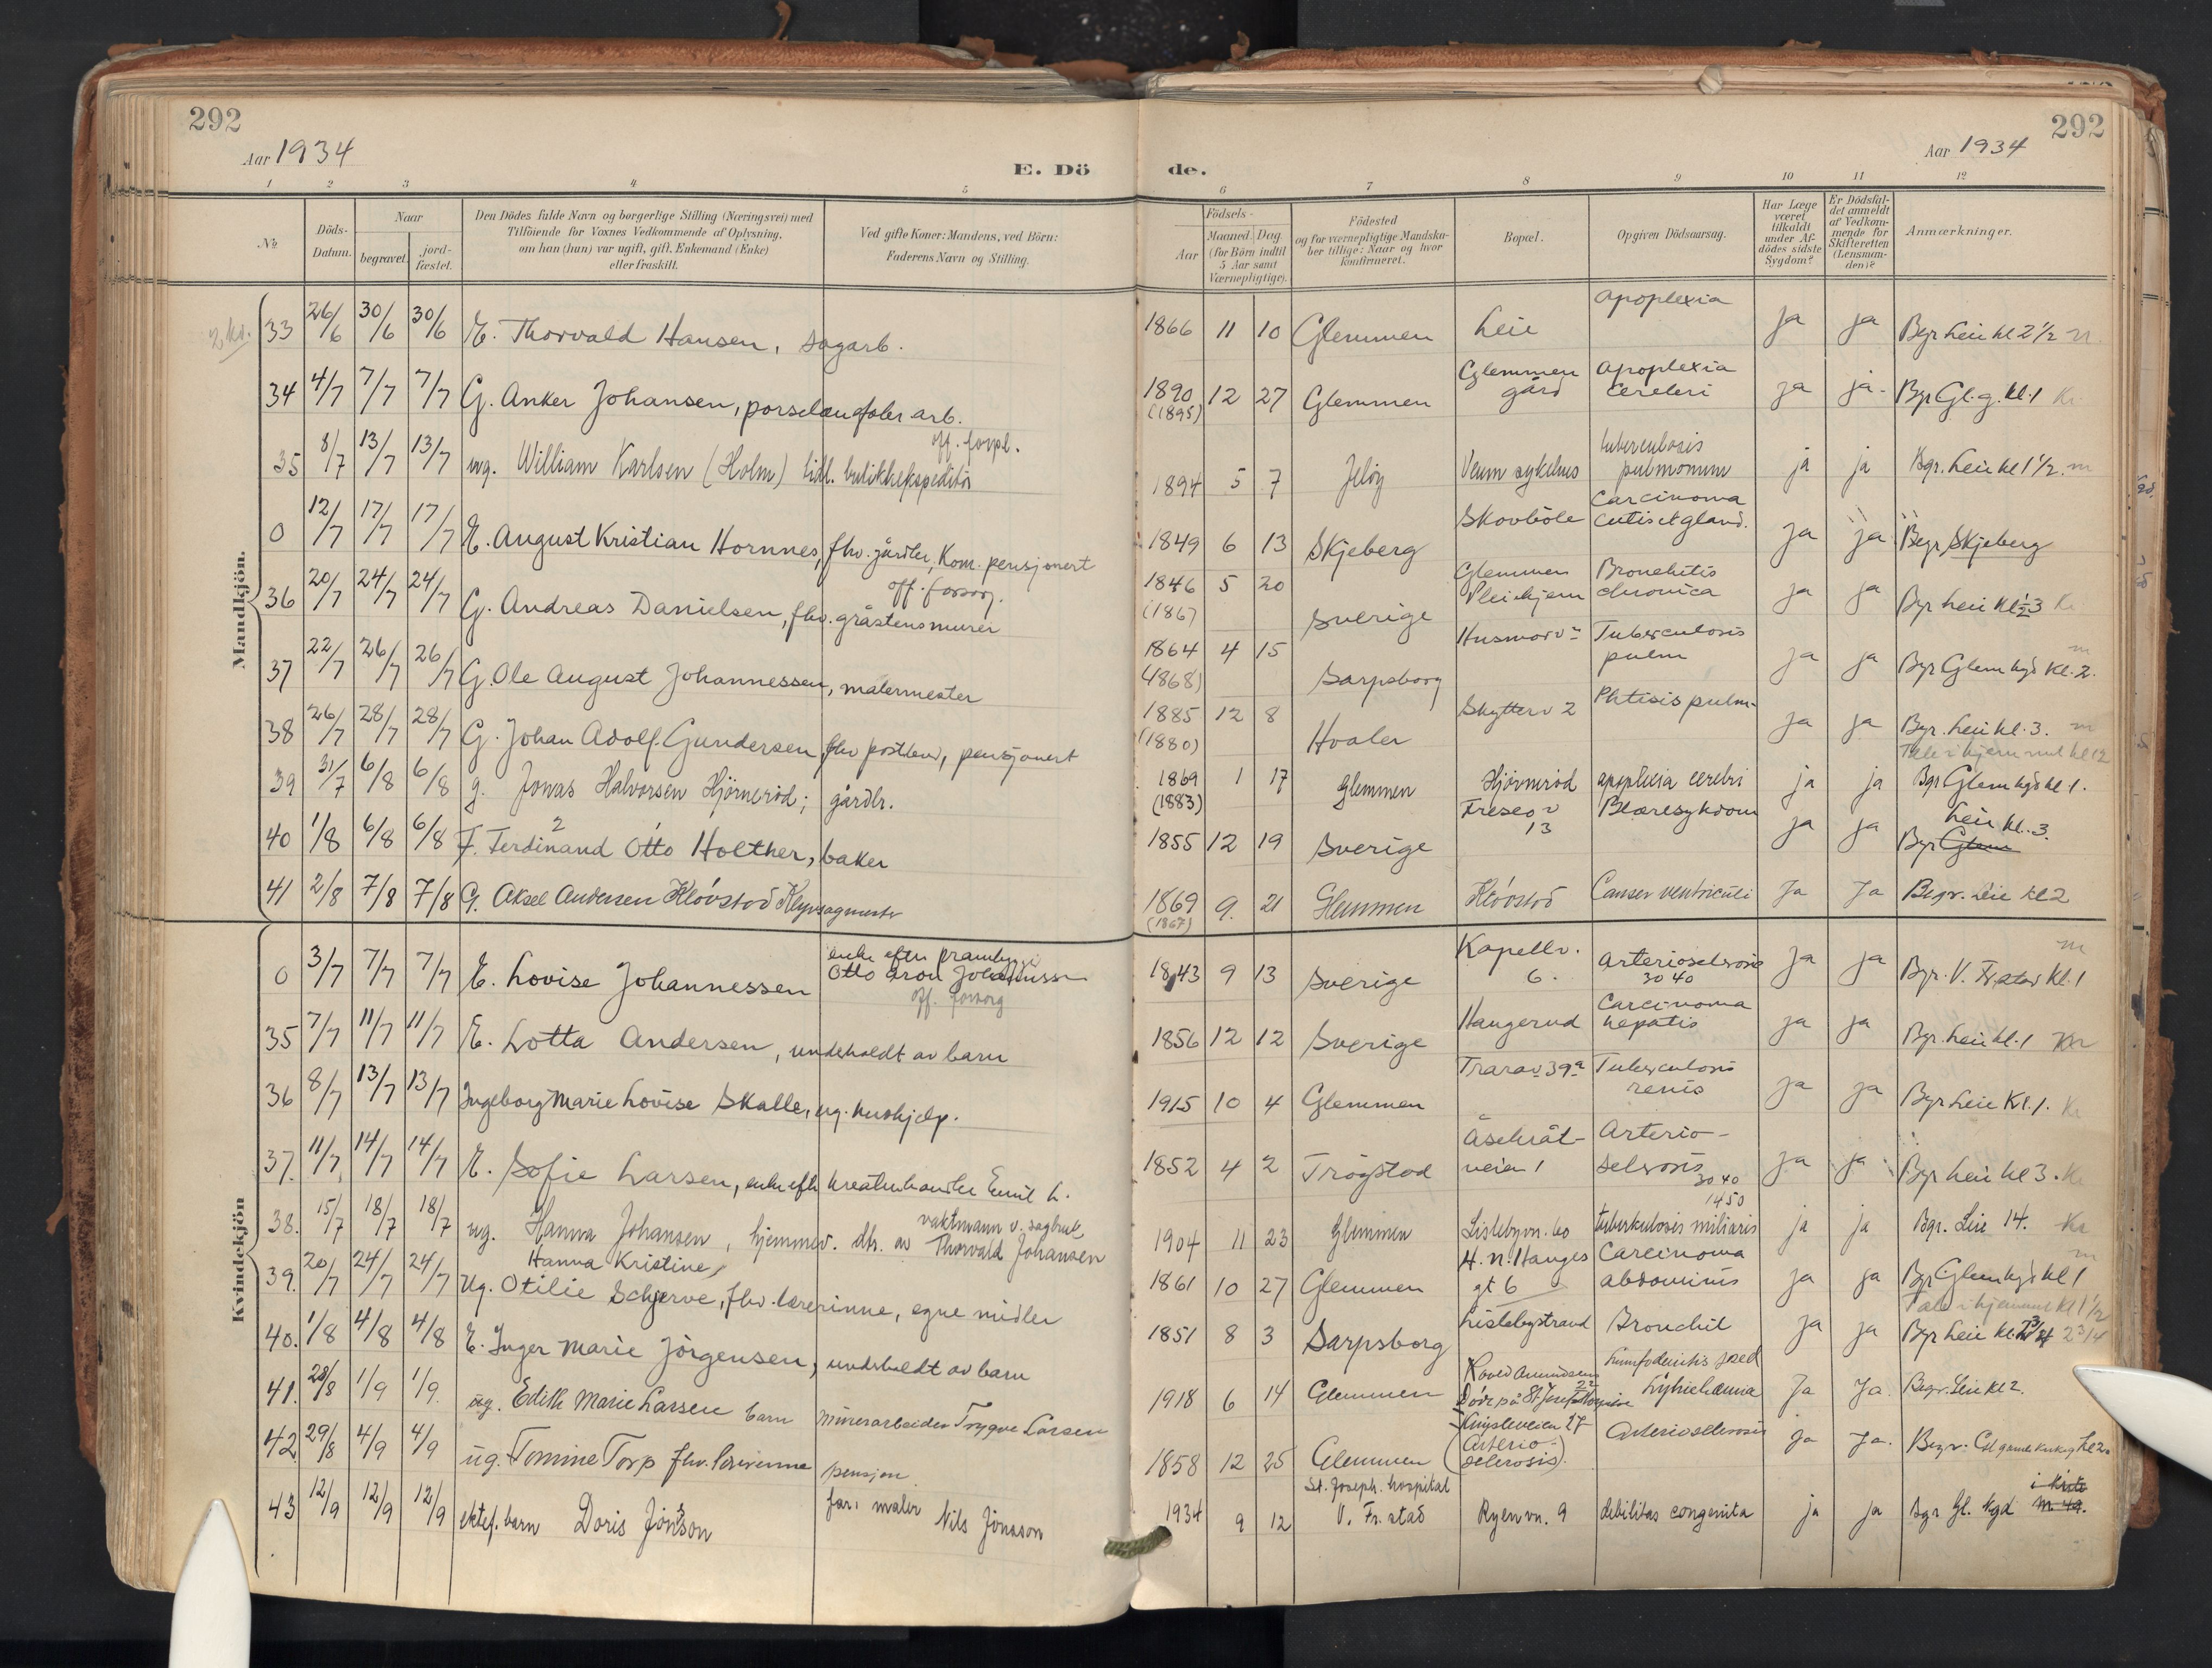 292
Aar 1934
E. Dö
1 2 3 4 5
№
Döds-Datum.
Naar
begravet.
jord-fæstet.
Den Dödes fulde Navn og borgerlige Stilling (Næringsvei) med
Tilföiende for Voxnes Vedkommende af Oplysning,
om han (hun) var ugift, gift, Enkemand (Enke)
eller fraskilt.
Ved gifte Koner: Mandens, ved Börn:
Faderens Navn og Stilling.
292
Aar 1934
de.
6 7 8 9 10 11 12
Födsels-
Aar
Maaned. Dag.
(for Börn indtil
5 Aar samt
Værnepligtige).
Födested
og for værnepligtige Mandska-
ber tillige: Naar og hvor
konfirmeret.
Bopæl.
Opgiven Dödsaarsag.
Har Læge
været
tilkaldt
under Af-
dödes sidste
Sygdom?
Er Dödsfal-
det anmeldt
af Vedkom-
mende for
Skifteretten
(Lensman-
den)?
Anmærkninger.
Mandkjön.
33 26/6 30/6 30/6 E. Thorvald Hansen, sagarb. 1866 11 10 Glemmen Leie apoplexia ja ja Bgr Leie kl 2 1/2
34 4/7 7/7 7/7 G. Anker Johansen, porselænsfaler arb. 1890 (1895) 12 27 Glemmen Glemmen gård apoplexia cerebri ja ja Bgr Gl. g. kl. 1 Kr
off. forpl.
35 8/7 13/7 13/7 ug. William Karlsen (Holm) tidl. butikkekspeditör 1894 5 7 Jelöy Veum sykehus tuberculosis pulmonum ja ja Bgr. Leie kl 1 1/2 m
0 12/7 17/7 17/7 E. August Kristian Hornnes, fhv. gårdbr, Kom. pensjonert 1849 6 13 Skjeberg Skovböle Carcinoma cutis et gland. ja ja Begr Skjeberg
off. forsorg.
36 20/7 24/7 24/7 G. Andreas Danielsen, fhv. gråstensmurer 1846 (1867 5 20 Sverige Glemmen Pleiehjem Bronchitis chronica ja ja Bgr Leie Kl 1/2 3 Kr
37 22/7 26/7 26/7 G. Ole August Johannessen, malermester 1864 (1868) 4 15 Sarpsborg Husmorv Tuberculosis pulm ja ja Bgr Glem kgd Kl. 2. m
38 26/7 28/7 28/7 G. Johan Adolf Gundersen, fhv postbud, pensjonert 1885 (1880) 12 8 Hvaler Skytterv 2 Phtisis pulm. ja ja Bgr. Leie kl. 3. m
39 31/7 6/8 6/8 g. Jonas Halvorsen Hjörneröd; gårdbr. 1869 (1883) 1 17 Glemmen Hjörneröd apoplexia cerebri ja ja Bgr Glem kgd kl 1.
40 1/8 6/8 6/8 F. Ferdinand Otto Holther, baker 1855 12 19 Sverige 13 Blæresykdom ja ja Bgr Glem Leie kl. 3.
41 2/8 7/8 7/8 G. Aksel Andersen Klövstad 1869 (1867) 9. 21 Glemmen Klövstad Canser ventriculi Ja Ja Begr. Leie kl 2
Kvindekjön
0 3/7 7/7 7/7 E. Lovise Johannessen enke efter Otto Aron Johannessen off. forsorg 1843 9 13 Sverige Kapellv. 6. Arteriosclerosis 30 40 ja ja Bgr. V. Fr.stad Kl. 1 m
35 7/7 11/7 11/7 E. Lotta Andersen, underholdt av barn 1856 12 12 Sverige Haugerud Carcinoma hepatis ja ja Bgr. Leie kl. 1 m
36 8/7 13/7 13/7 Ingeborg Marie Lovise Skalle, ug. hushjelp. 1915 10 4 Glemmen Trarav 39a Tuberculosis renis ja ja Bgr Leie Kl. 1. Kr
37. 11/7 14/7 14/7 E. Sofie Larsen, enke efter kreaturhandler Emil L. 1852 4 2 Trögstad veien 1 Arterio-sclerosis 30 40 ja ja Bgr Leie kl 3. Kr
38. 15/7 18/7 18/7 ug. Hanna Johansen, hjemmev. dtr. av vaktmann v. sagbruk Thorvald Johansen 1904 11 23 Glemmen Lislebyvn. 60 tuberkulosis miliaris 1450 ja ja Bgr. Leie 14. Kr
39. 20/7 24/7 24/7 Ug. Hanna Kristine Otilie Schjerve, fhv. lærerinne, egne midler 1861 10 27 Glemmen H. N. Hauges gt 6 Carcinoma abdominis ja ja Bgr Glem kgd kl 1 m
40. 1/8 4/8 4/8 E. Inger Marie Jörgensen, underholdt av barn 1851 8 3 Sarpsborg Lislebystrand Bronchit ja ja Bgr Leie kl. 2 3/4
41. 28/8 1/9 1/9. ug. Edith Marie Larsen barn murerarbeider Trygve Larsen 1918 6 14 Glemmen Roald Amundsens Död på St Josef Ja Ja. Begr. Leie kl 2.
42 29/8 4/9 4/9 ug. Tomine Torp fhv. lærerinne pensjon 1858 12 25 Glemmen (Arterio-sclerosis). Arteriosclerosis ja Ja. Begr.
43 12/9 12/9 12/9 ektef. barn Doris Jönsson far: maler Nils Jönsson 1934 9 12 St. Joseph. hospital V. Fr. stad Ryenvn. 9 debilitas congenita ja ja Bgr Gl. kgd